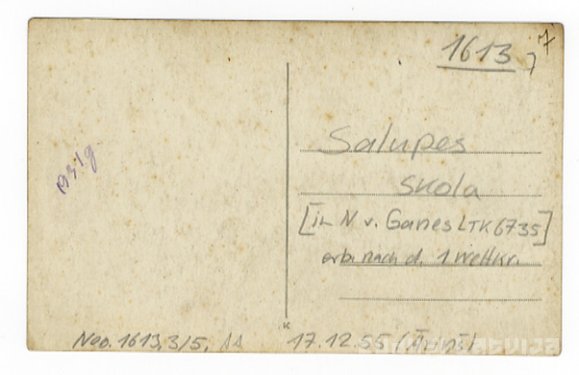 1613
7
7
Salupes
skola
[in N v. Ganes LTK 6735]
erb. nach d. 1 Weltkr.
Neg. 1613, 3/5,
17.12.55